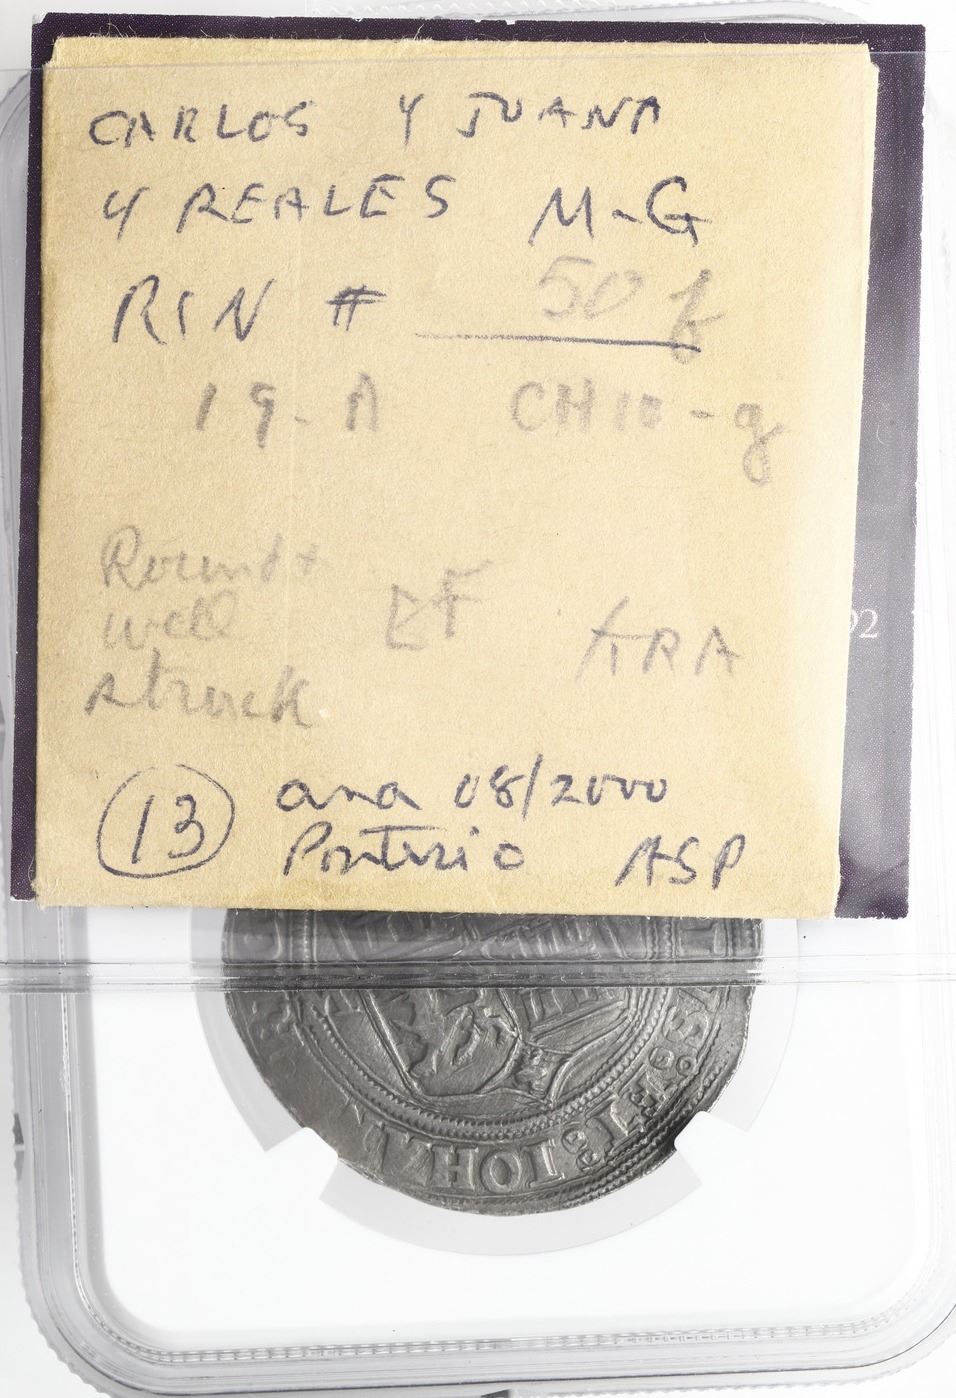 CARLOS Y JUANA
4 REALES M-G
RIN # 50 f
19-A CH10-g
Round +
well
struck
EF
ARA
92
13
ana 08/2000
Ponterio ASP
IOHAN